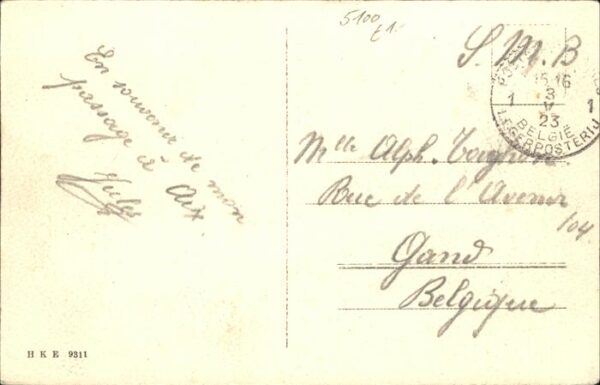 5100
£1-
S.M.B
En souvenir de mon
passage à Aix.
Jules
15-16
3
V
23
1 1
BELGIË
LEGERPOSTERIJ
Mlle Alph.
Rue de l'Avenir
104.
Gand
Belgique
H K E 9311